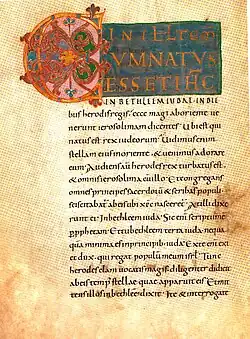 IN ILL TEM
CUM NATUS
ESSET IHC
IN BETHLEEM IUDAE IN DIE
bus herodis regis. ecce magi ab oriente ue
nerunt ierosolimam dicentes. Ubi est qui
natus est rex iudeorum. Uidimus enim
stellam eius in oriente. & uenimus adorare
eum. Audiens aū herodes rex turbatus est.
& omnis ierosolima cū illo. Et congregans
omnes principes sacerdotū & scribas populi.
sciscitabat ab eis ubi xp̄c nasceret. At illi dixe
runt ei. In bethleem iudae. Sic enī scriptū ē
p prophetam. Et tu bethleem terra iuda. nequa
quā minima es in principib; iuda. Ex te enī exi
et dux. qui regat populū meum isrl. Tunc
herodes clam uocatis magis. diligenter didicit
ab eis temp stellae quae apparuit eis. Et mit
tens illos in bethleē dixit. Ite & interrogate